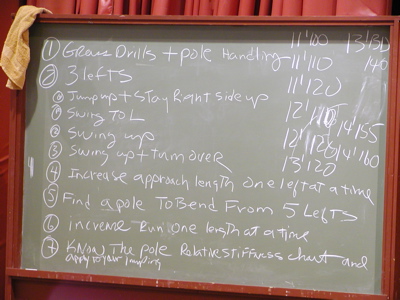 ① Grass Drills + pole Handling 11'100 13'130
② 3 lefts 11'110 140
⓪ Jump up + Stay Right side up 11'120
① Swing To L 12'
② Swing up 12'120 14'155
③ Swing up + turn over 13'120 14'160
④ Increase approach length one left at a time
⑤ Find a pole To Bend From 5 Lefts
⑥ increase Run one length at a time
⑦ Know The pole Relative stiffness chart and
apply to your jumping